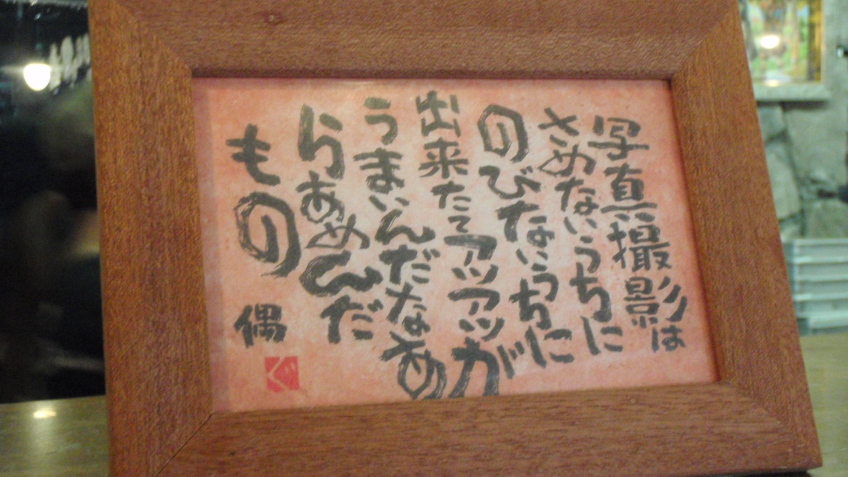 写真撮影は
さめないうちに
のびないうちに
出来たてアツアツが
うまいんだなあ
らあめんだ
もの
偶
ぐ